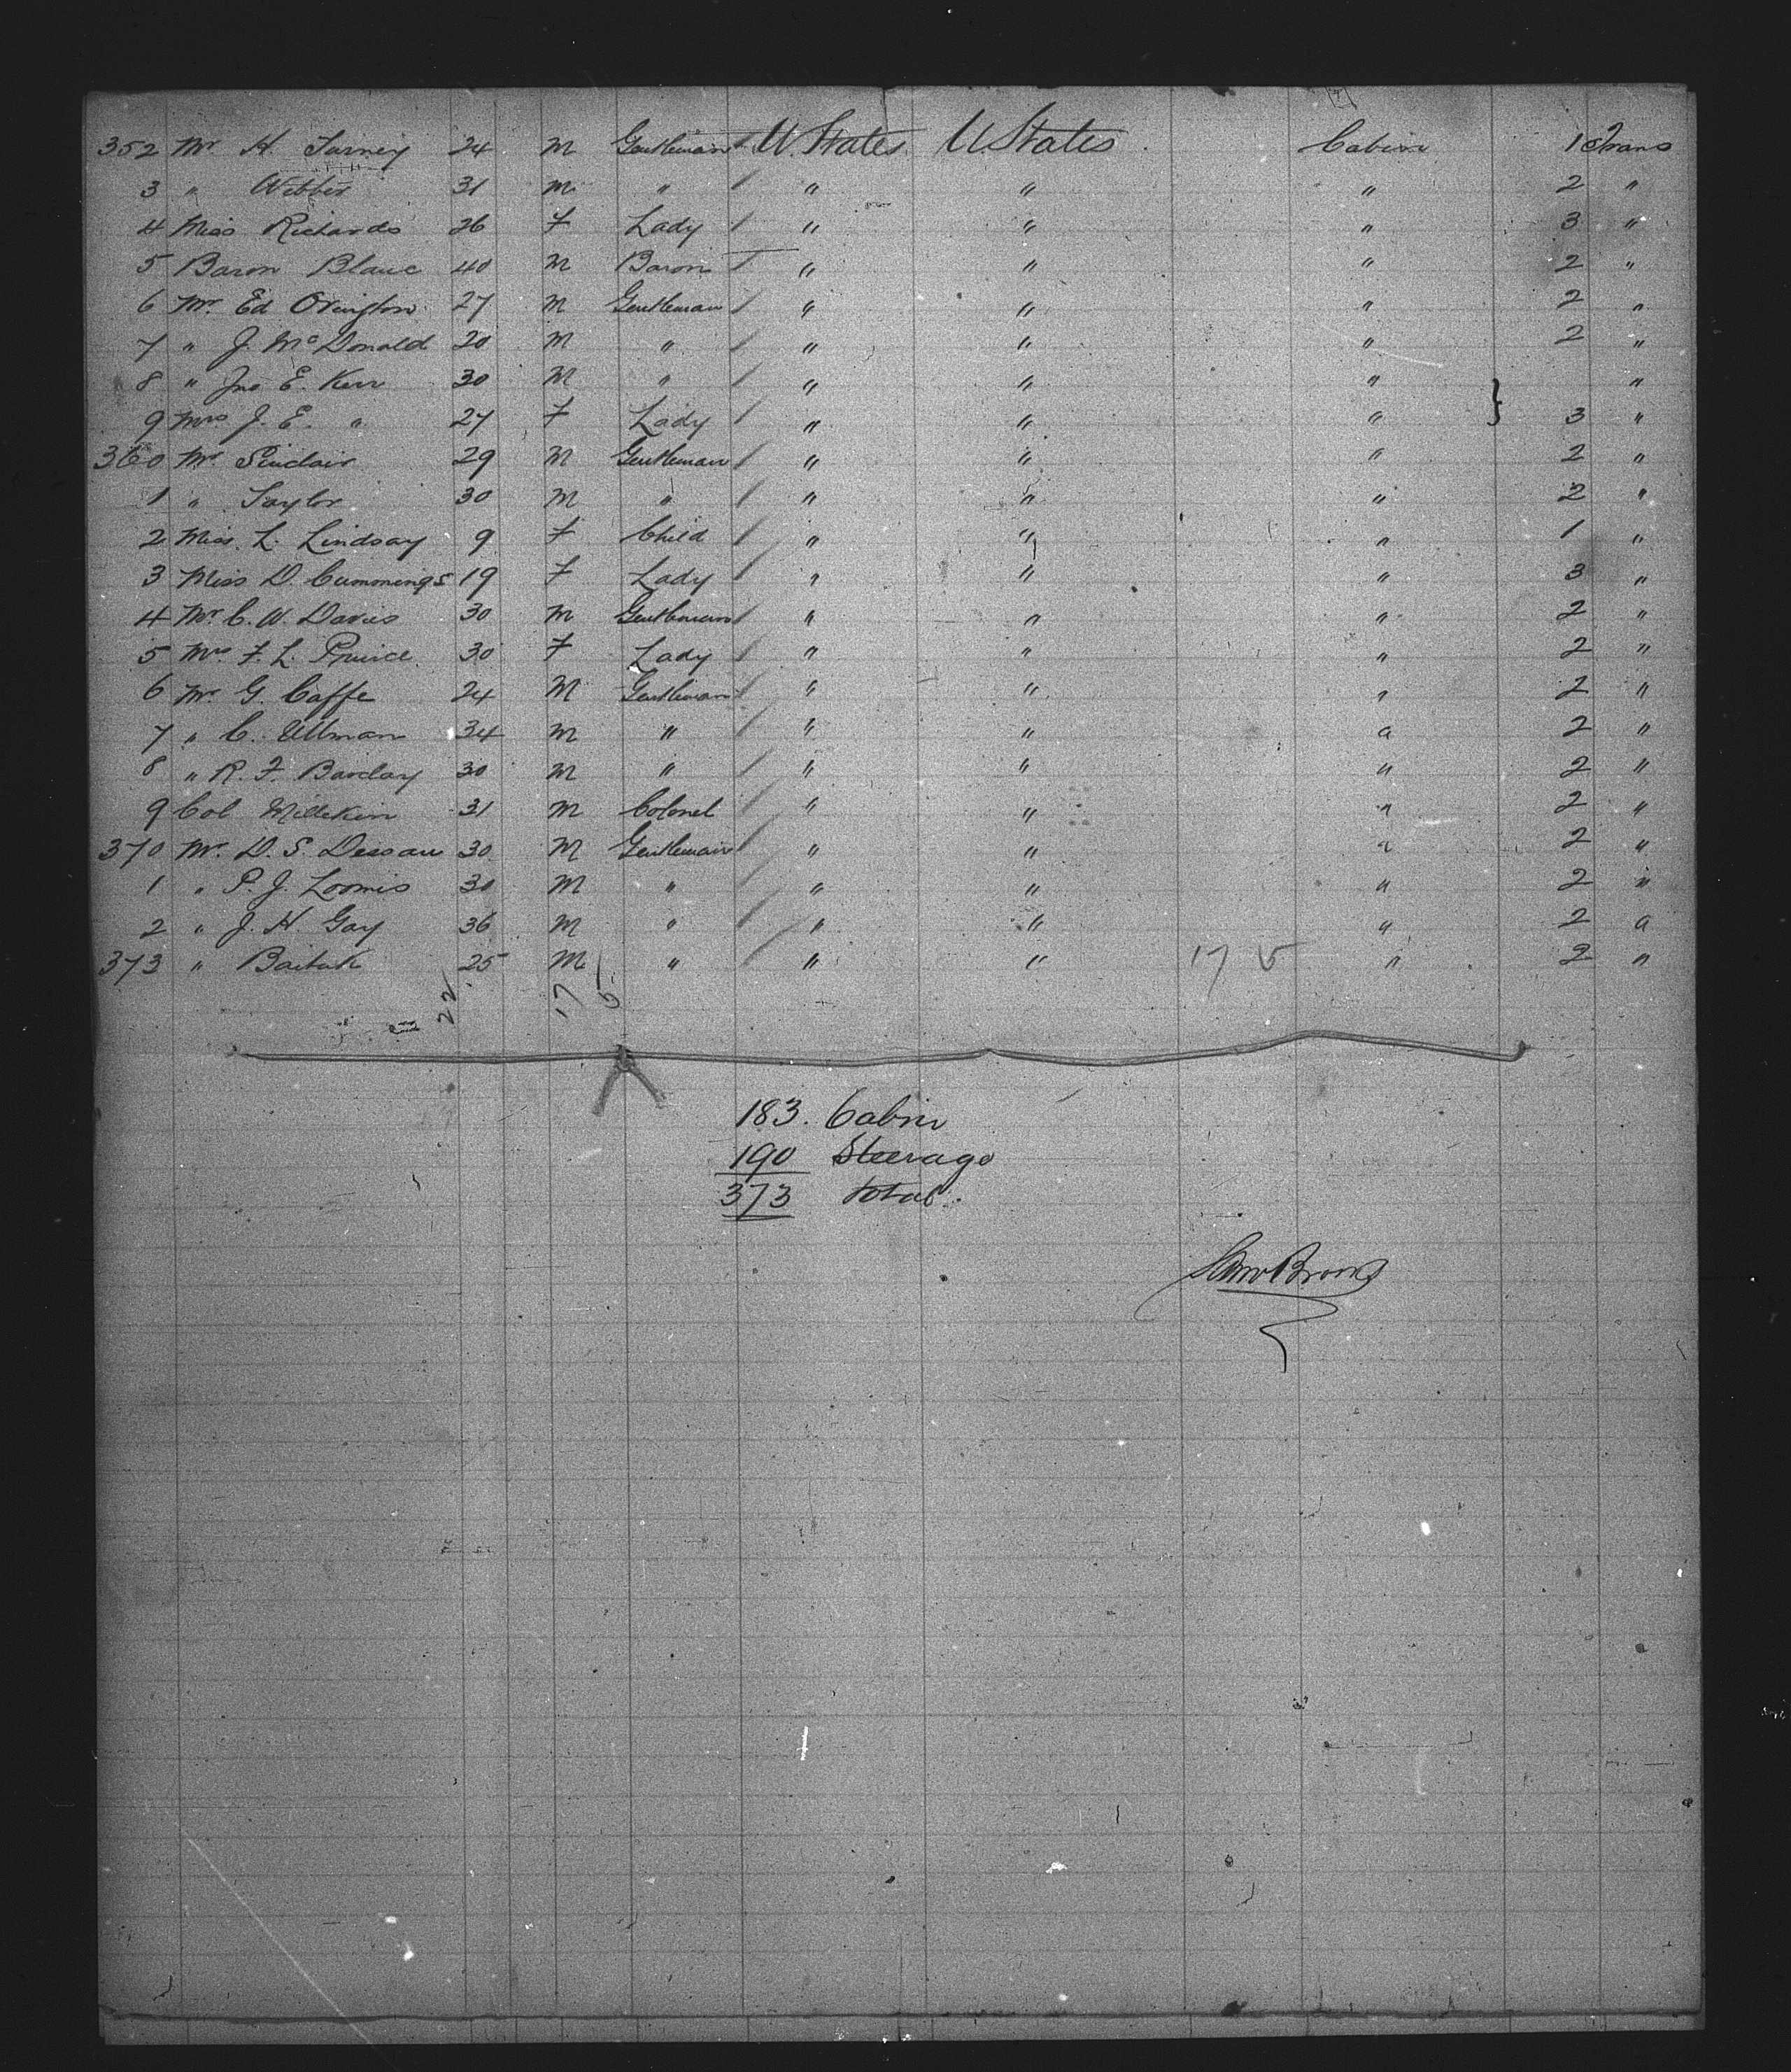 352 Mr H. Turney 24 M Gentleman U. States U. States Cabin 1 Trans
3 " Webber 31 M " " " " 2 "
4 Miss Richards 26 F Lady " " " 3 "
5 Baron Blanc 40 M Baron " " " 2 "
6 Mr. Ed Ovington 27 M Gentleman " " " 2 "
7 " J. McDonald 20 M " " " " 2 "
8 " Jno E. Kerr 30 M " " " " "
9 Mrs J. E. " 27 F Lady " " " } 3 "
360 Mr Sinclair 29 M Gentleman " " " 2 "
1 " Taylor 30 M " " " " 2 "
2 Miss. L. Lindsay 9 F Child " " " 1 "
3 Miss D. Cummings 19 F Lady " " " 3 "
4 Mr C. W. Davis 30 M Gentleman " " " 2 "
5 Mrs F. L. 30 F Lady " " " 2 "
6 Mr. G. Caffe 24 M Gentleman " " " 2 "
7 " C. Ullman 34 M " " " " 2 "
8 " R. F. Barclay 30 M " " " " 2 "
9 Col Millekin 31 M Colonel " " " 2 "
370 Mr. D. S. Dessau 30 M Gentleman " " " 2 "
1 " P. J. Loomis 30 M " " " " 2 "
2 " J. H. Gay 36 M " " " " 2 "
373 " 25 M " " " 17 5 " 2 "
22 17 5
183. Cabin
190 Steerage
373 total.